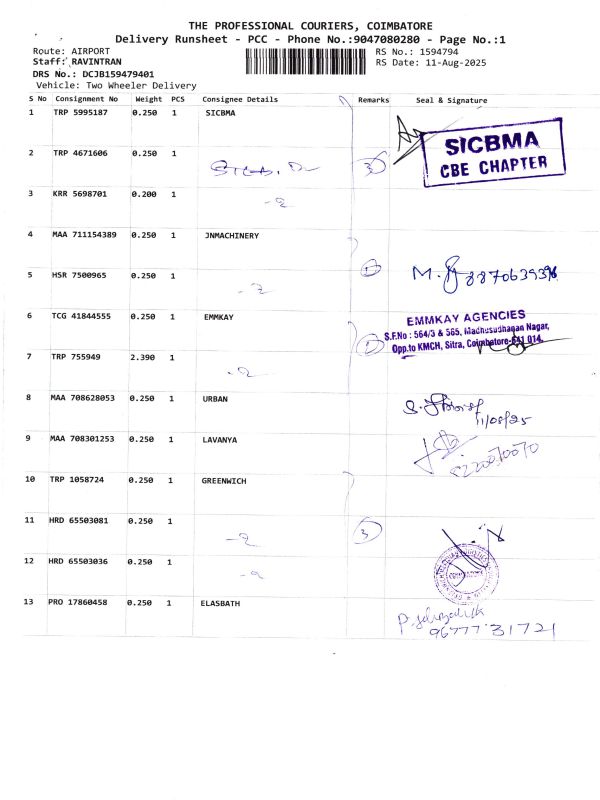 THE PROFESSIONAL COURIERS, COIMBATORE
Delivery Runsheet - PCC - Phone No.:9047080280 - Page No.:1
Route: AIRPORT
RS No.: 1594794
Staff: RAVINTRAN
RS Date: 11-Aug-2025
DRS No.: DCJB159479401
Vehicle: Two Wheeler Delivery
S No Consignment No Weight PCS Consignee Details Remarks Seal & Signature
1 TRP 5995187 0.250 1 SICBMA
SICBMA
CBE CHAPTER
2 TRP 4671606 0.250 1
3
3 KRR 5698701 0.200 1
4 MAA 711154389 0.250 1 JNMACHINERY
5 HSR 7500965 0.250 1
6 TCG 41844555 0.250 1 EMMKAY
EMMKAY AGENCIES
S.F.No : 564/3 & 565, Madhusudhanan Nagar,
Opp.to KMCH, Sitra, Coimbatore-641 014.
7 TRP 755949 2.390 1
8 MAA 708628053 0.250 1 URBAN
11/08/25
9 MAA 708301253 0.250 1 LAVANYA
10 TRP 1058724 0.250 1 GREENWICH
11 HRD 65503081 0.250 1
3
12 HRD 65503036 0.250 1
13 PRO 17860458 0.250 1 ELASBATH
96777 31721